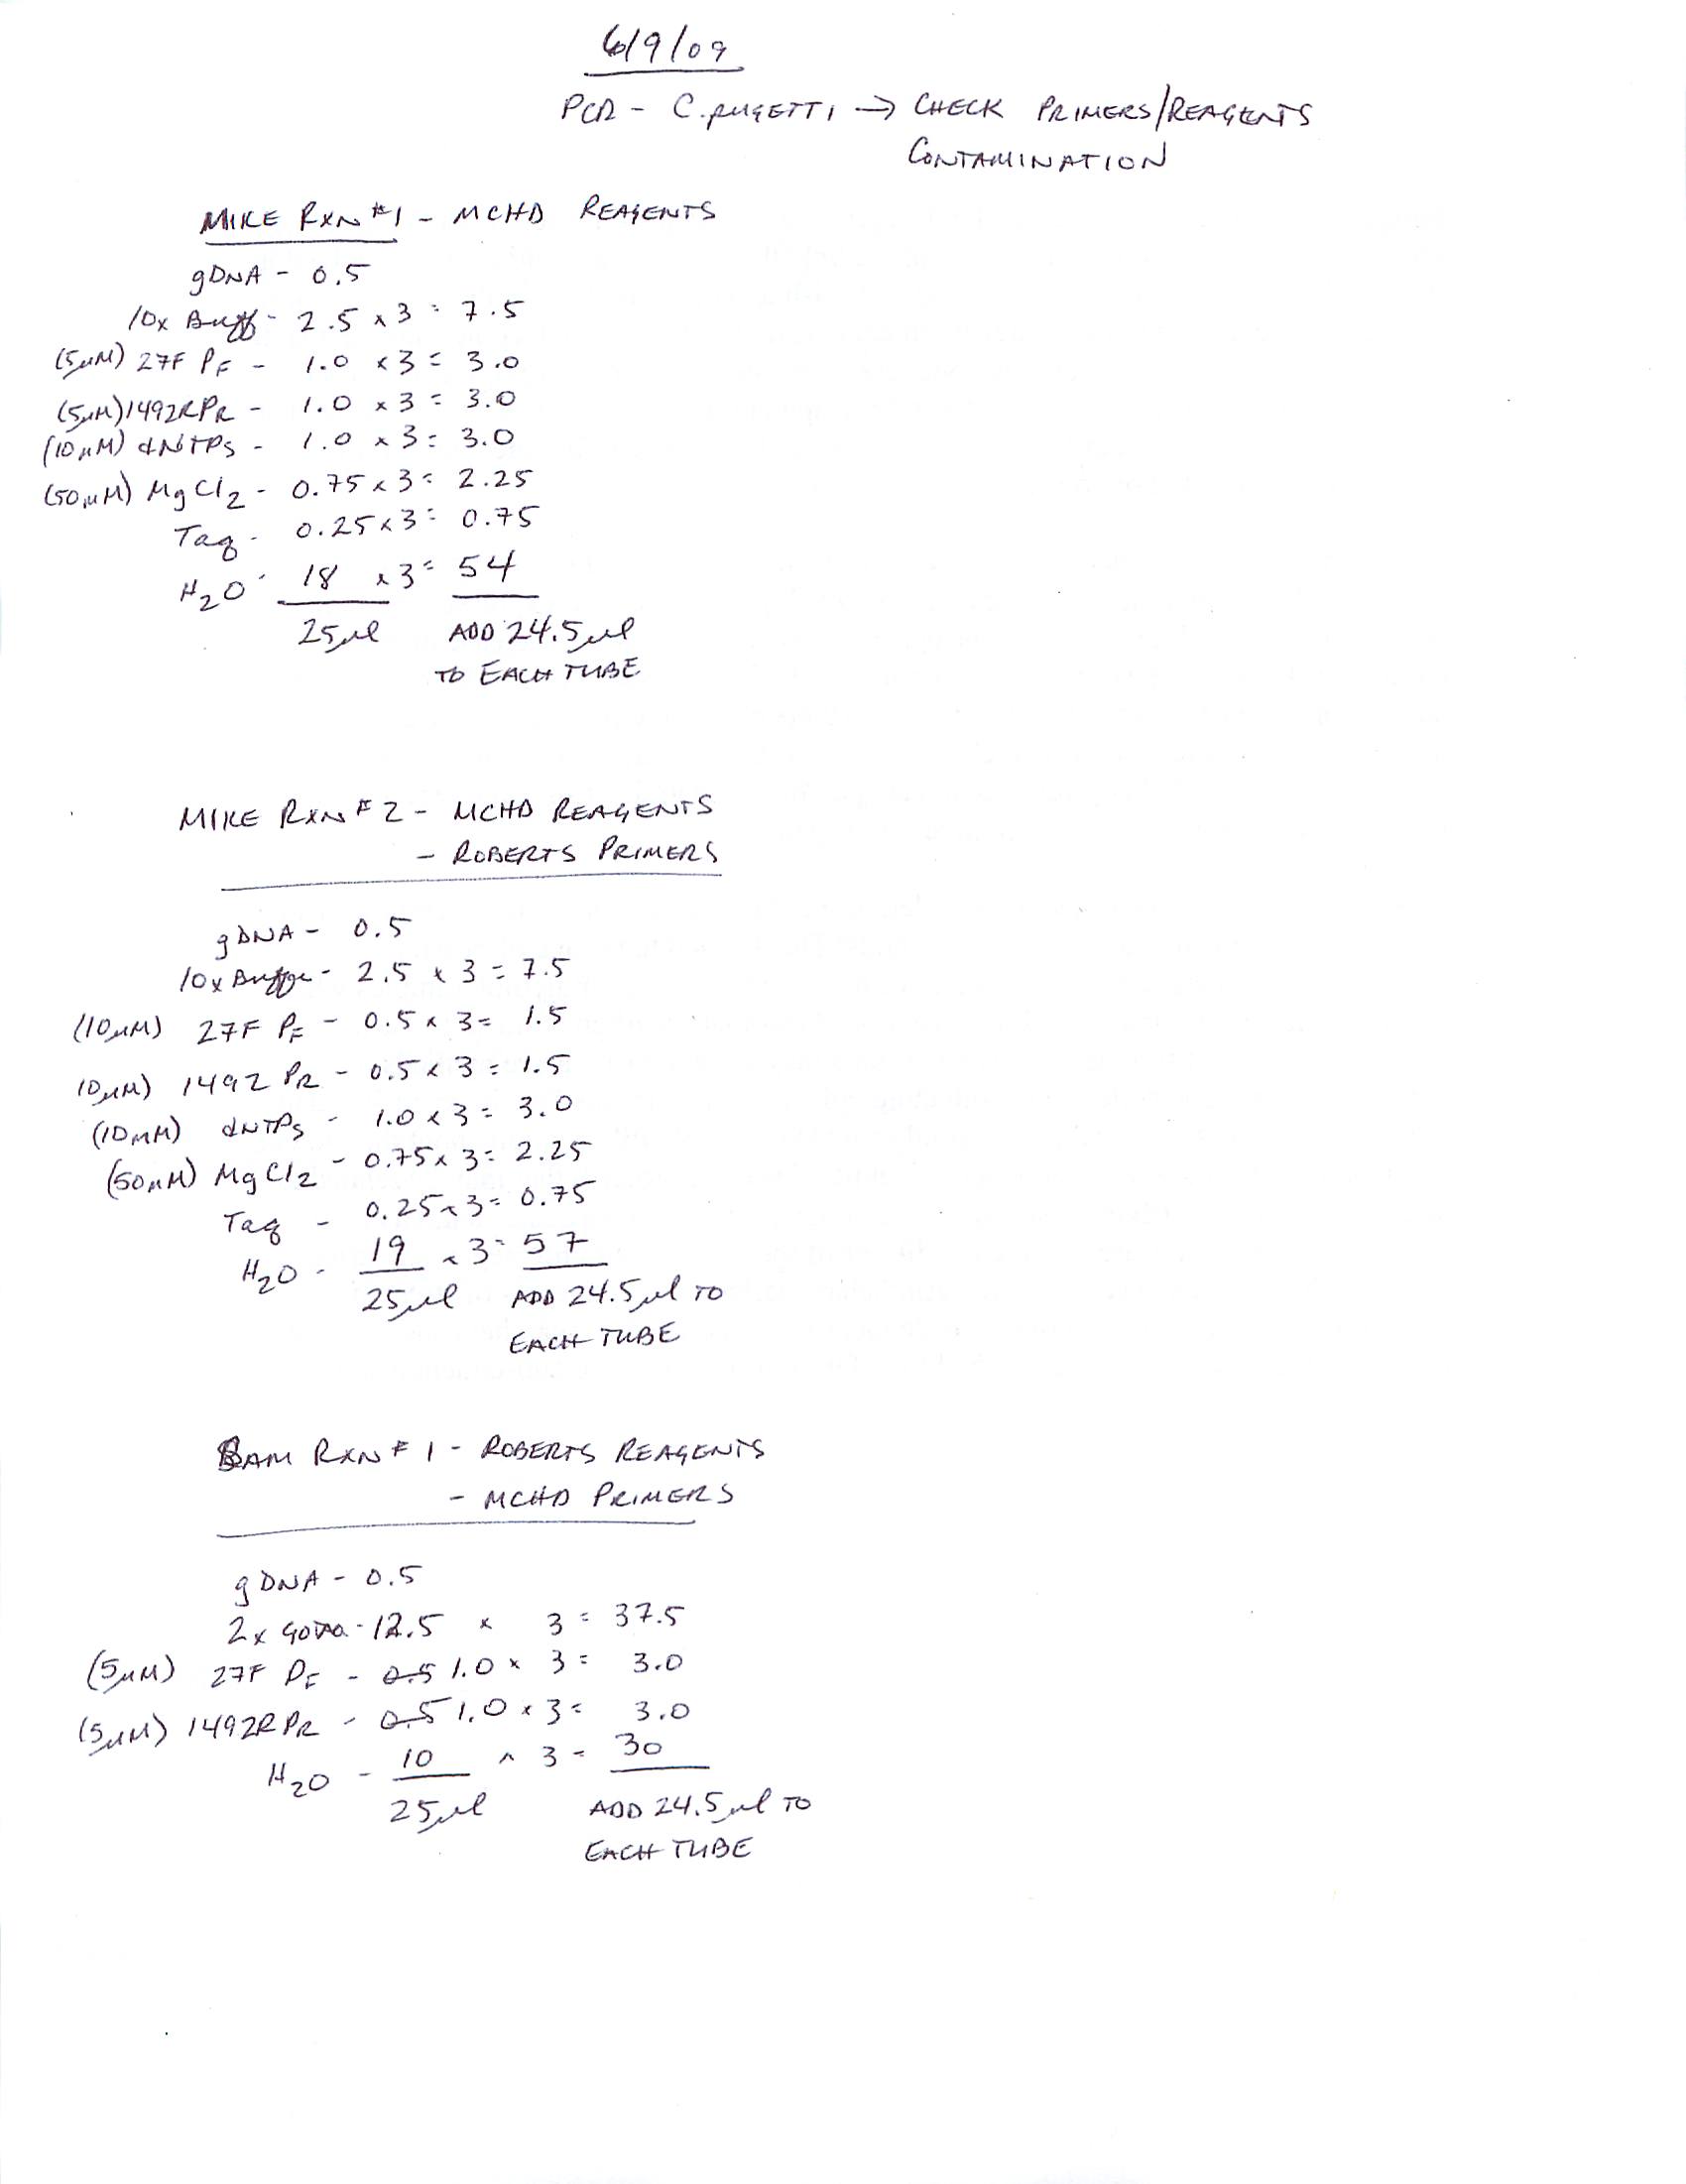 6/9/09
PCR - C. pugetti → CHECK PRIMERS/REAGENTS
CONTAMINATION
MIKE RXN #1 - MCHD REAGENTS
gDNA - 0.5
10x Buff - 2.5 x 3 = 7.5
(5µM) 27F PF - 1.0 x 3 = 3.0
(5µM) 1492R PR - 1.0 x 3 = 3.0
(10µM) dNTPs - 1.0 x 3 = 3.0
(50µM) MgCl2 - 0.75 x 3 = 2.25
Taq - 0.25 x 3 = 0.75
H2O - 18 x 3 = 54
25µl ADD 24.5µl
TO EACH TUBE
MIKE RXN #2 - MCHD REAGENTS
- ROBERTS PRIMERS
gDNA - 0.5
10x Buffer - 2.5 x 3 = 7.5
(10µM) 27F PF - 0.5 x 3 = 1.5
10µM) 1492 PR - 0.5 x 3 = 1.5
(10mM) dNTPs - 1.0 x 3 = 3.0
(50µM) MgCl2 - 0.75 x 3 = 2.25
Taq - 0.25 x 3 = 0.75
H2O - 19 x 3 = 57
25µl ADD 24.5µl TO
EACH TUBE
BAM RXN #1 - ROBERTS REAGENTS
- MCHD PRIMERS
gDNA - 0.5
2x - 12.5 x 3 = 37.5
(5µM) 27F PF - 0.5 1.0 x 3 = 3.0
(5µM) 1492R PR - 0.5 1.0 x 3 = 3.0
H2O - 10 x 3 = 30
25µl ADD 24.5µl TO
EACH TUBE